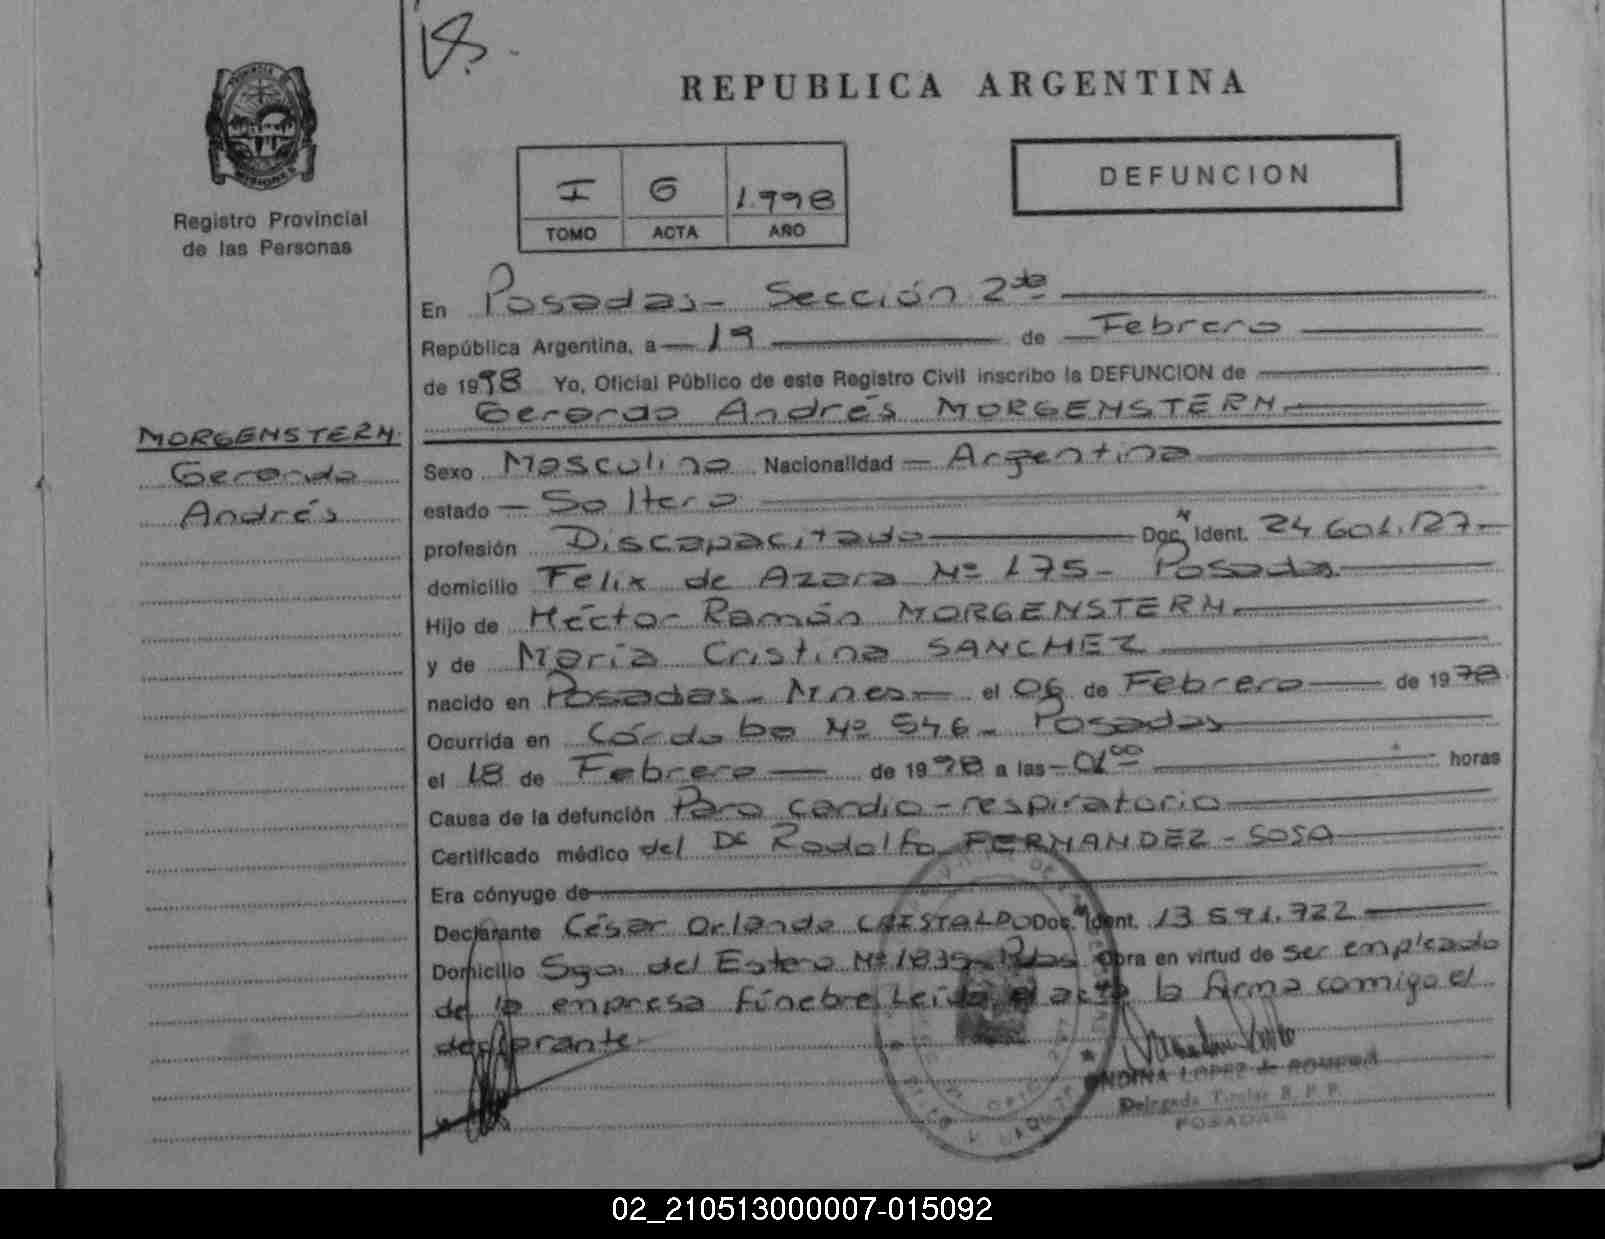 18.
REPUBLICA ARGENTINA
I G 1.998
TOMO ACTA AÑO
DEFUNCION
PROVINCIA DE
MISIONES
Registro Provincial
de las Personas
En Posadas- Sección 2da
República Argentina, a 19 de Febrero
de 1998 Yo, Oficial Público de este Registro Civil inscribo la DEFUNCION de
Gerardo Andrés MORGENSTERN
MORGENSTERN
Gerardo
Andrés
Sexo Masculino Nacionalidad Argentina
estado Soltero
profesión Discapacitado Doc. Ident. 24.601.127
domicilio Felix de Azara Nº 175- Posadas
Hijo de Héctor Ramón MORGENSTERN
y de María Cristina SANCHEZ
nacido en Posadas- Mnes el 06 de Febrero de 1978
Ocurrida en Córdoba Nº 546- Posadas
el 18 de Febrero de 1998 a las 01 00 horas
Causa de la defunción Paro cardio-respiratorio
Certificado médico del Dr Rodolfo FERNANDEZ-SOSA
Era cónyuge de
Declarante César Orlando CRISTALDO Doc. Ident. 13.591.722
Domicilio Sgo. del Estero Nº 1835- Pdas Obra en virtud de ser empleado
de la empresa fúnebre Leída el acta la firma comigo el
declarante
LOPEZ de ROMERO
Delegada Titular R. P. P.
POSADAS
02_210513000007-015092